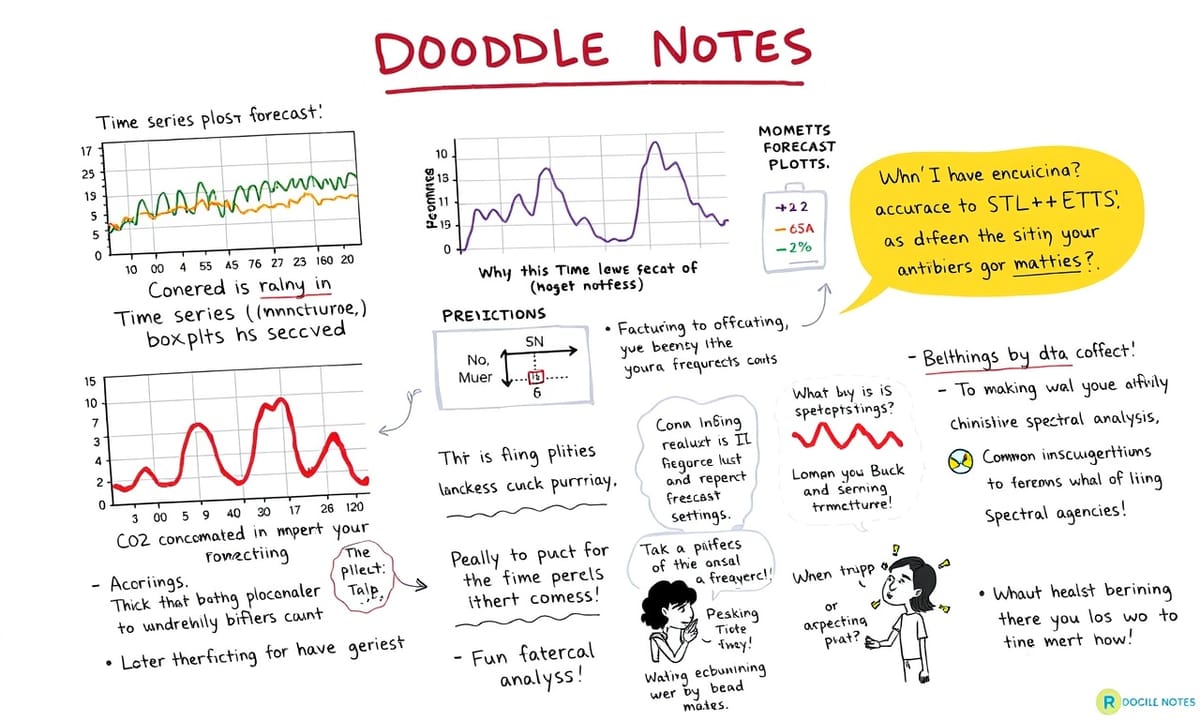 DOODDLE NOTES
Time series plosт forecast:
17
25
19
5
5
0
10 00 4 55 45 76 27 23 160 20
Conered is ralny in
Time series ((nnnctıuroe,)
boxplts hs seccved
10
13
11
19
0
Why this Time lewe fecat of
(hoget notfess)
MOMETTS
FORECAST
PLOTTS.
+22
-65A
-2%
Whn' I have encuicina?
accurace to STL++ETTS:
as difeen the sitin your
antibiers gor matties?
PREIICTIONS
5N
No,
Muer
6
• Facturing to offcuting,
yue beensy ithe
youra frequrects couts
15
10
7
3
4
2
0
3 00 5 9 40 30 17 26 120
CO2 concomated in mpert your
romectiing
The
pllect:
Talp
- Acoriings.
Thick that bothg ploconaler
to wndrehily biflers caunt
• Loter therficting for have geriest
Tht is fling plities
lanckess cuck purrriay,
Peally to puct for
the fime perels
ithert comess!
- Fun fatercal
analyss!
Conn Infing
realuxt is IL
fiegorce lust
and reperct
frescast
settings.
Tak a piifecs
of the onsal
a freqyerc!!
Pesking
Tiote
fney!
Wating ecbunining
wer by bead
mates.
What buy is is
spetoptstings?
Loman you Buck
and serning
trmnctturre!
When trupp
or
arpecting
prat?
- Belthings by dta coffect!
- To making wal youe atfvily
chinistive spectral analysis,
Common inscuugerttiums
to ferems whal of liing
Spectral agencies!
• Whaut healst berining
there you los wo to
tine mert how!
R DOCILE NOTES